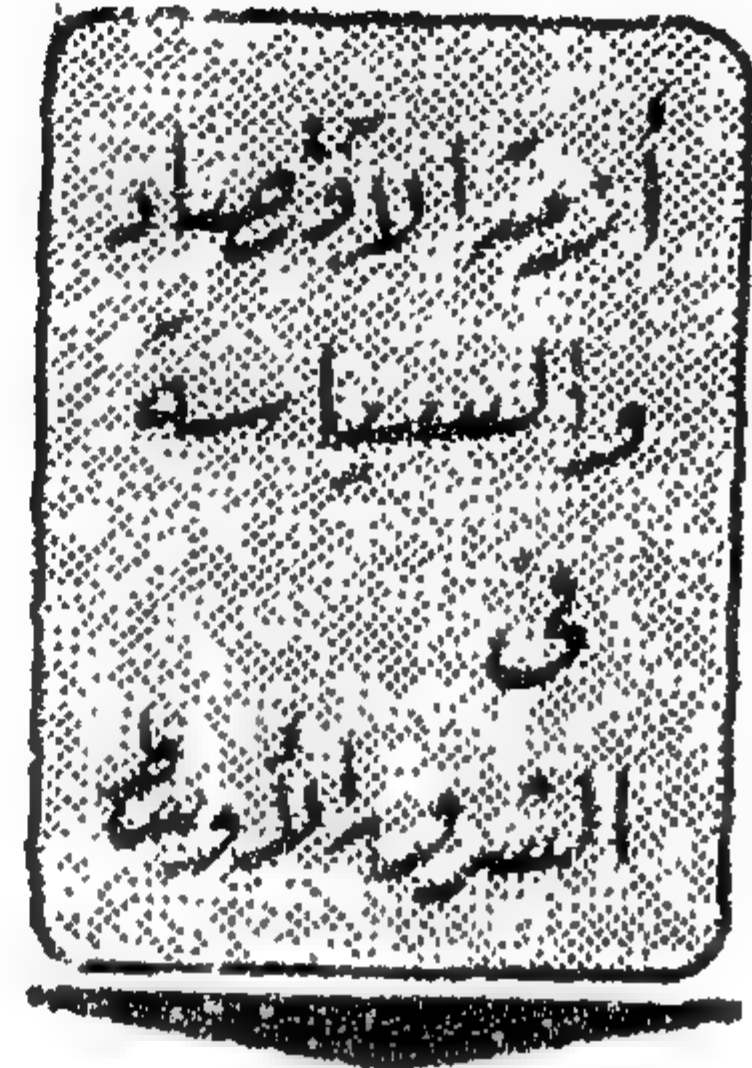 أزمة الاقتصاد
والسياسة
فى
الشرق الأوسط